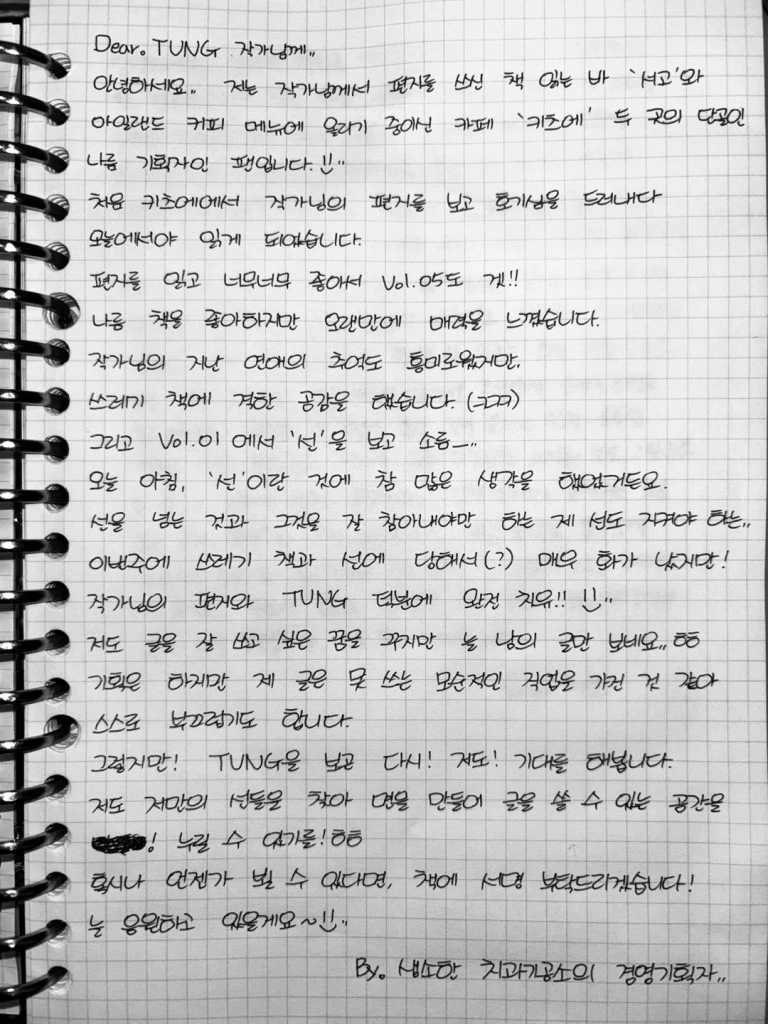 Dear. TUNG 작가님께..
안녕하세요.. 저는 작가님께서 편지를 쓰신 책 읽는 바 '서고'와
아일랜드 커피 메뉴에 올리기 좋아신 카페 '키츠에' 두 곳의 단골인
나름 기획자인 팬입니다.!!¨
처음 키츠에에서 작가님의 편지를 보고 호기심을 드러내다
오늘에서야 읽게 되었습니다.
편지를 읽고 너무너무 좋아서 Vol.05도 겟!!
나름 책을 좋아하지만 오랜만에 매력을 느꼈습니다.
작가님의 지난 연애의 추억도 흥미로웠지만,
쓰레기 책에 격한 공감을 했습니다. (ㅋㅋㅋ)
그리고 Vol.01에서 '선'을 보고 소름_..
오늘 아침, '선'이란 것에 참 많은 생각을 했었거든요.
선을 넘는 것과 그것을 잘 참아내야만 하는 제 선도 지켜야 하는..
이번주에 쓰레기 책과 선에 당해서(?) 매우 화가 났지만!
작가님의 편지와 TUNG 덕분에 완전 치유!! !!¨
저도 글을 잘 쓰고 싶은 꿈을 꾸지만 늘 남의 글만 보네요..ㅎㅎ
기획은 하지만 제 글은 못 쓰는 모순적인 직업을 가진 것 같아
스스로 부끄럽기도 합니다.
그렇지만! TUNG을 보고 다시! 저도! 기대를 해봅니다.
저도 저만의 선들을 찾아 면을 만들어 글을 쓸 수 있는 공간을
! 누릴 수 있기를!ㅎㅎ
혹시나 언젠가 뵐 수 있다면, 책에 서명 부탁드리겠습니다!
늘 응원하고 있을게요~!!¨
By. 생소한 치과기공소의 경영기획자..